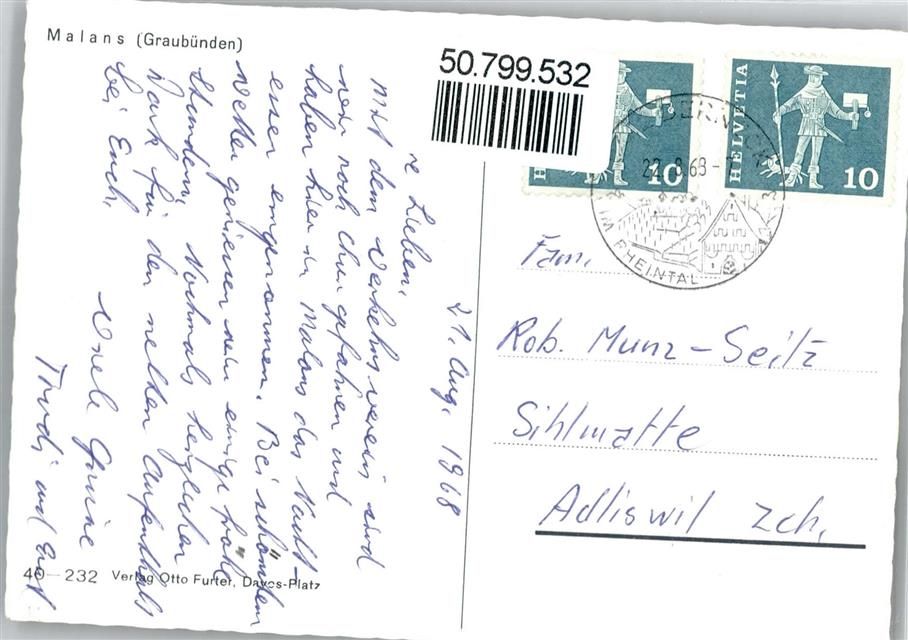 Malans (Graubünden)
50.799.532
HELVETIA
10
10
BERNECK
22.8.68-7
IM RHEINTAL
21. Aug. 1968
Lieben,
Mit dem Verkehrsverein sind
wir noch Chur gefahren und
haben hier in Malans das Nacht-
essen eingenommen. Bei schönem
Wetter geniessen wir einige frohe
Stunden. Nochmals herzlichen
Dank für den netten Aufenthalt
bei Euch.
Viele Grüsse
Trudi und Ernst
Fam.
Rob. Munz-Seitz
Sihlmatte
Adliswil Zch.
40-232 Verlag Otto Furter, Davos-Platz